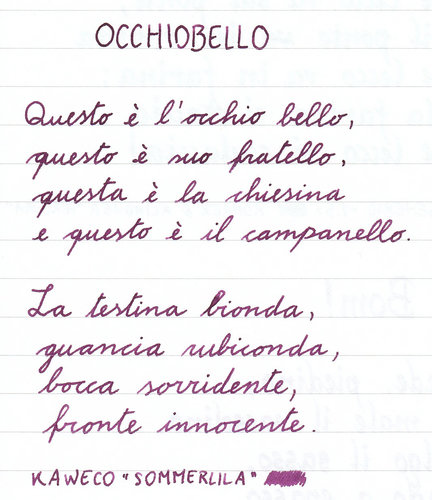 OCCHIOBELLO
Questo è l'occhio bello,
questo è suo fratello,
questa è la chiesina
e questo è il campanello.
La testina bionda,
guancia rubiconda,
bocca sorridente,
fronte innocente.
KAWECO "SOMMERLILA"